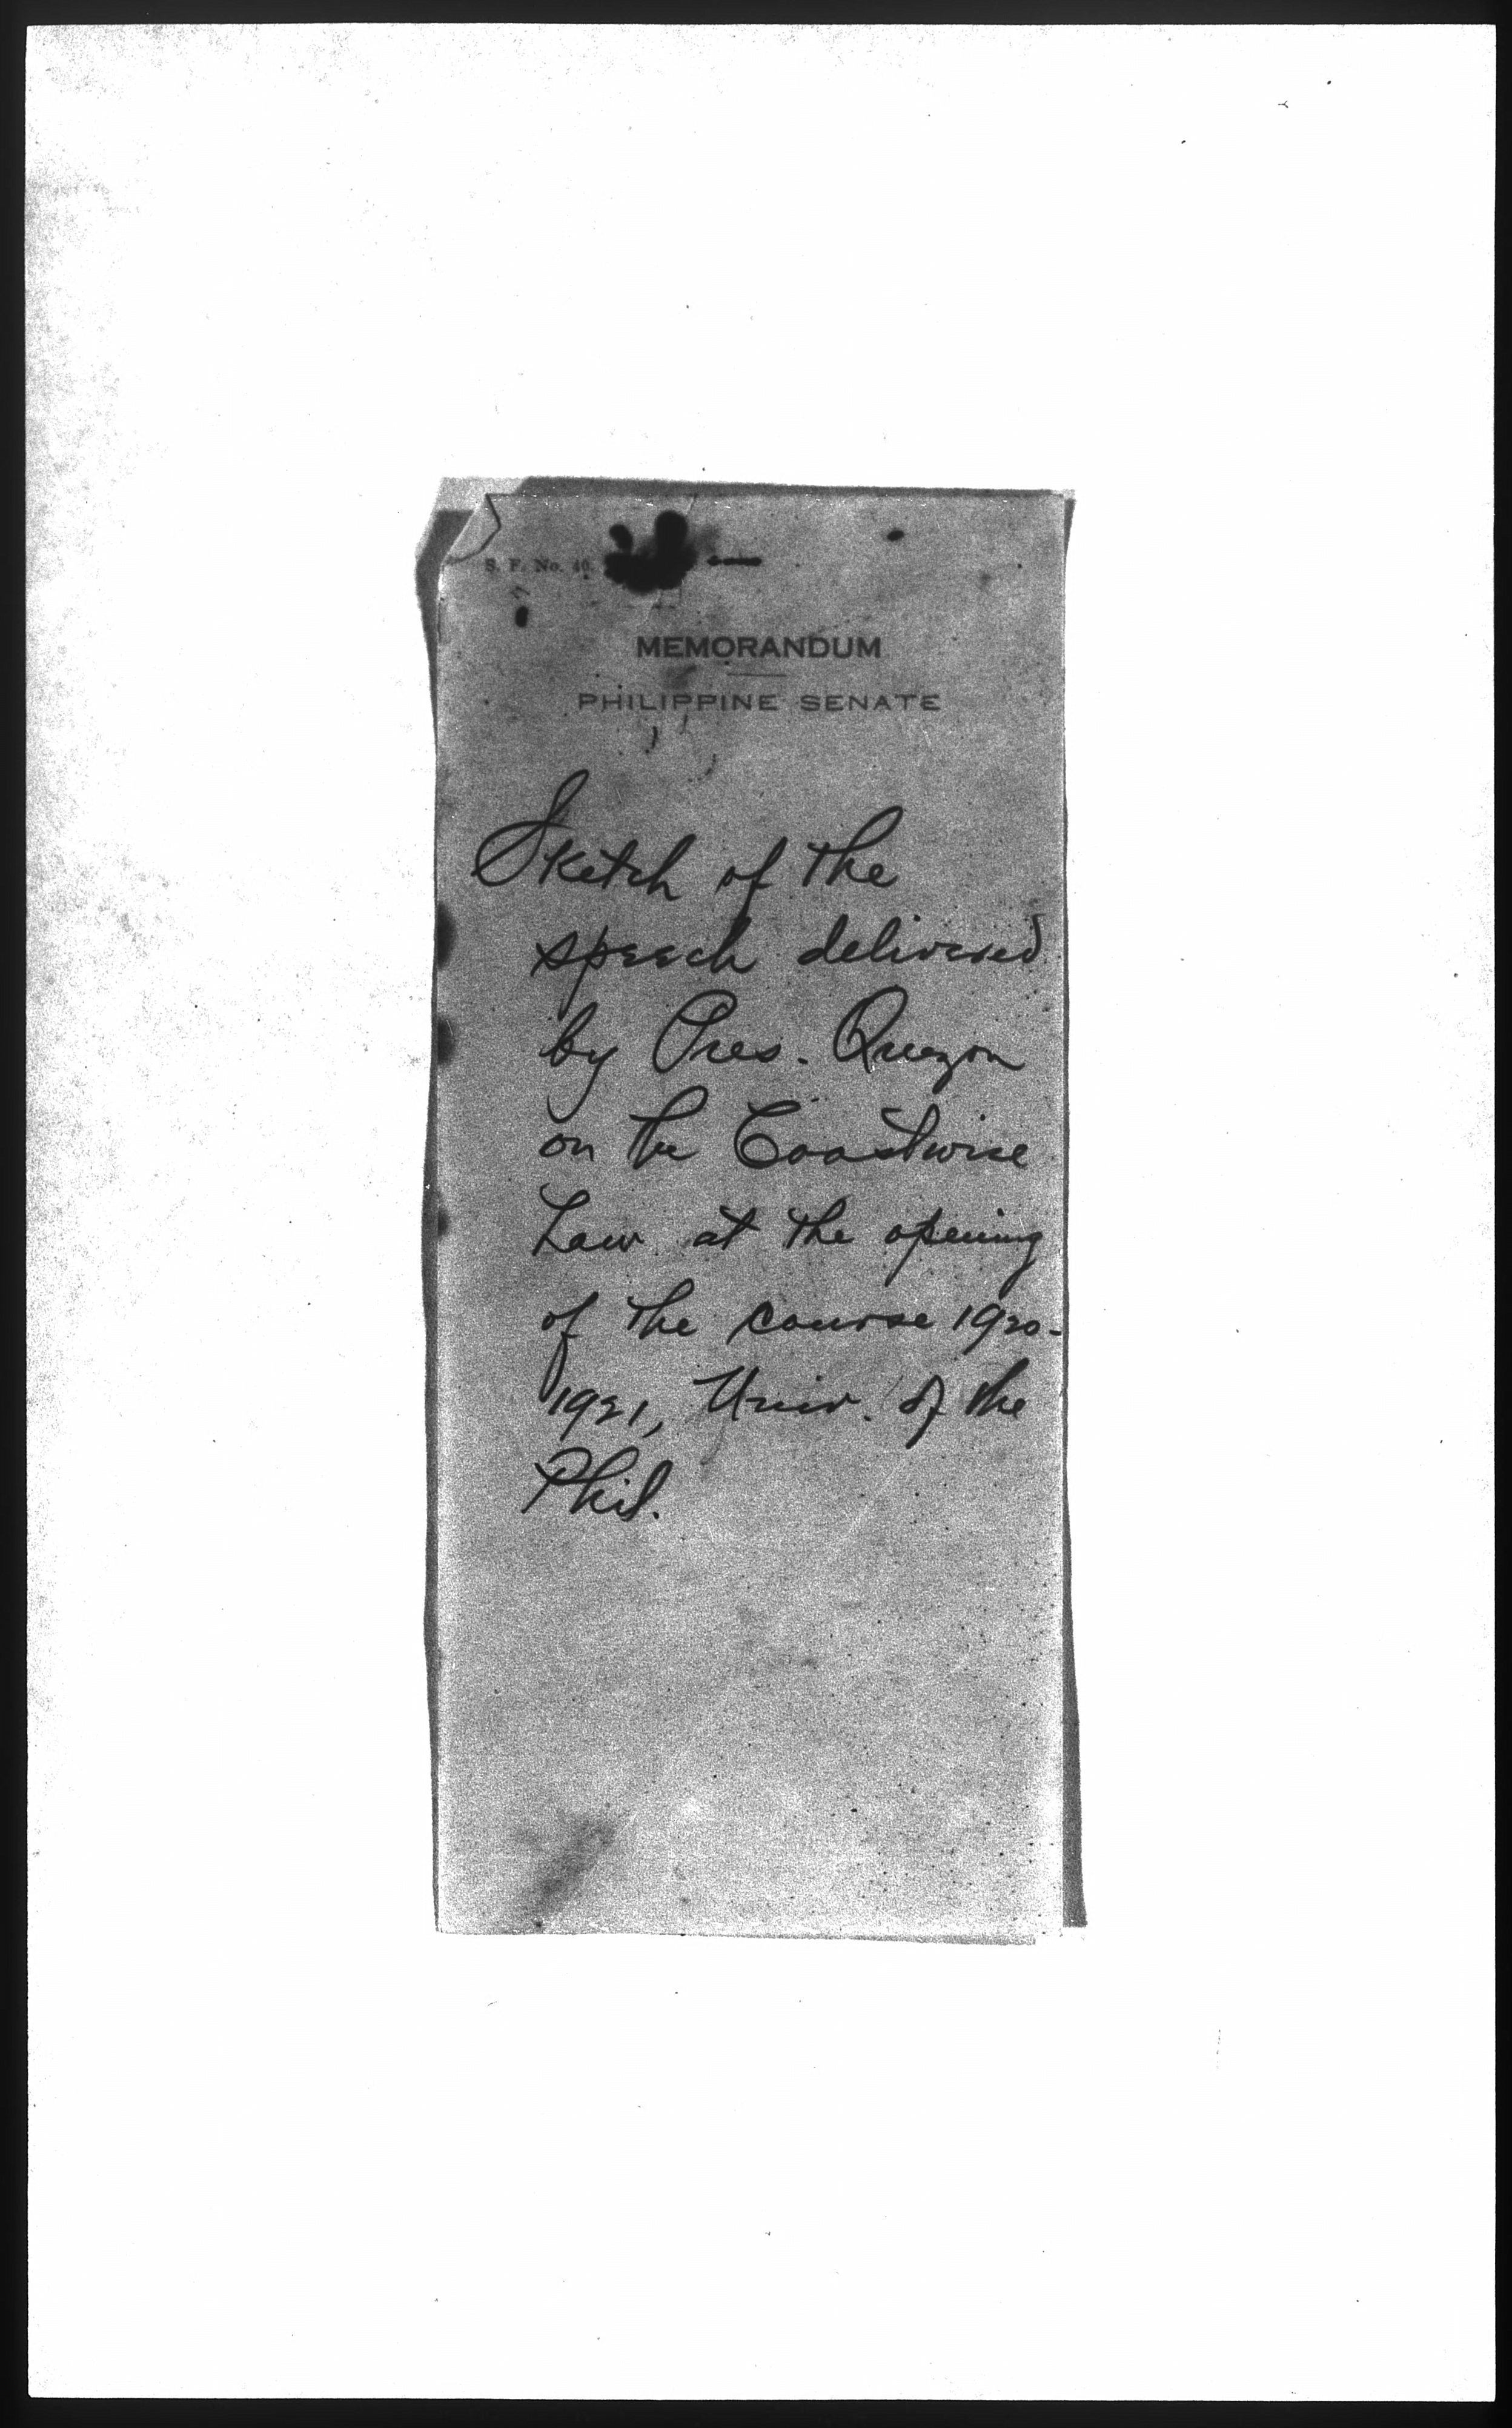 S. F. No. 40.
MEMORANDUM
PHILIPPINE SENATE
Sketch of the
speech delivered
by Pres. Quezon
on the Coastwise
Law at the opening
of the course 1920-
1921, Univ. of the
Phil.